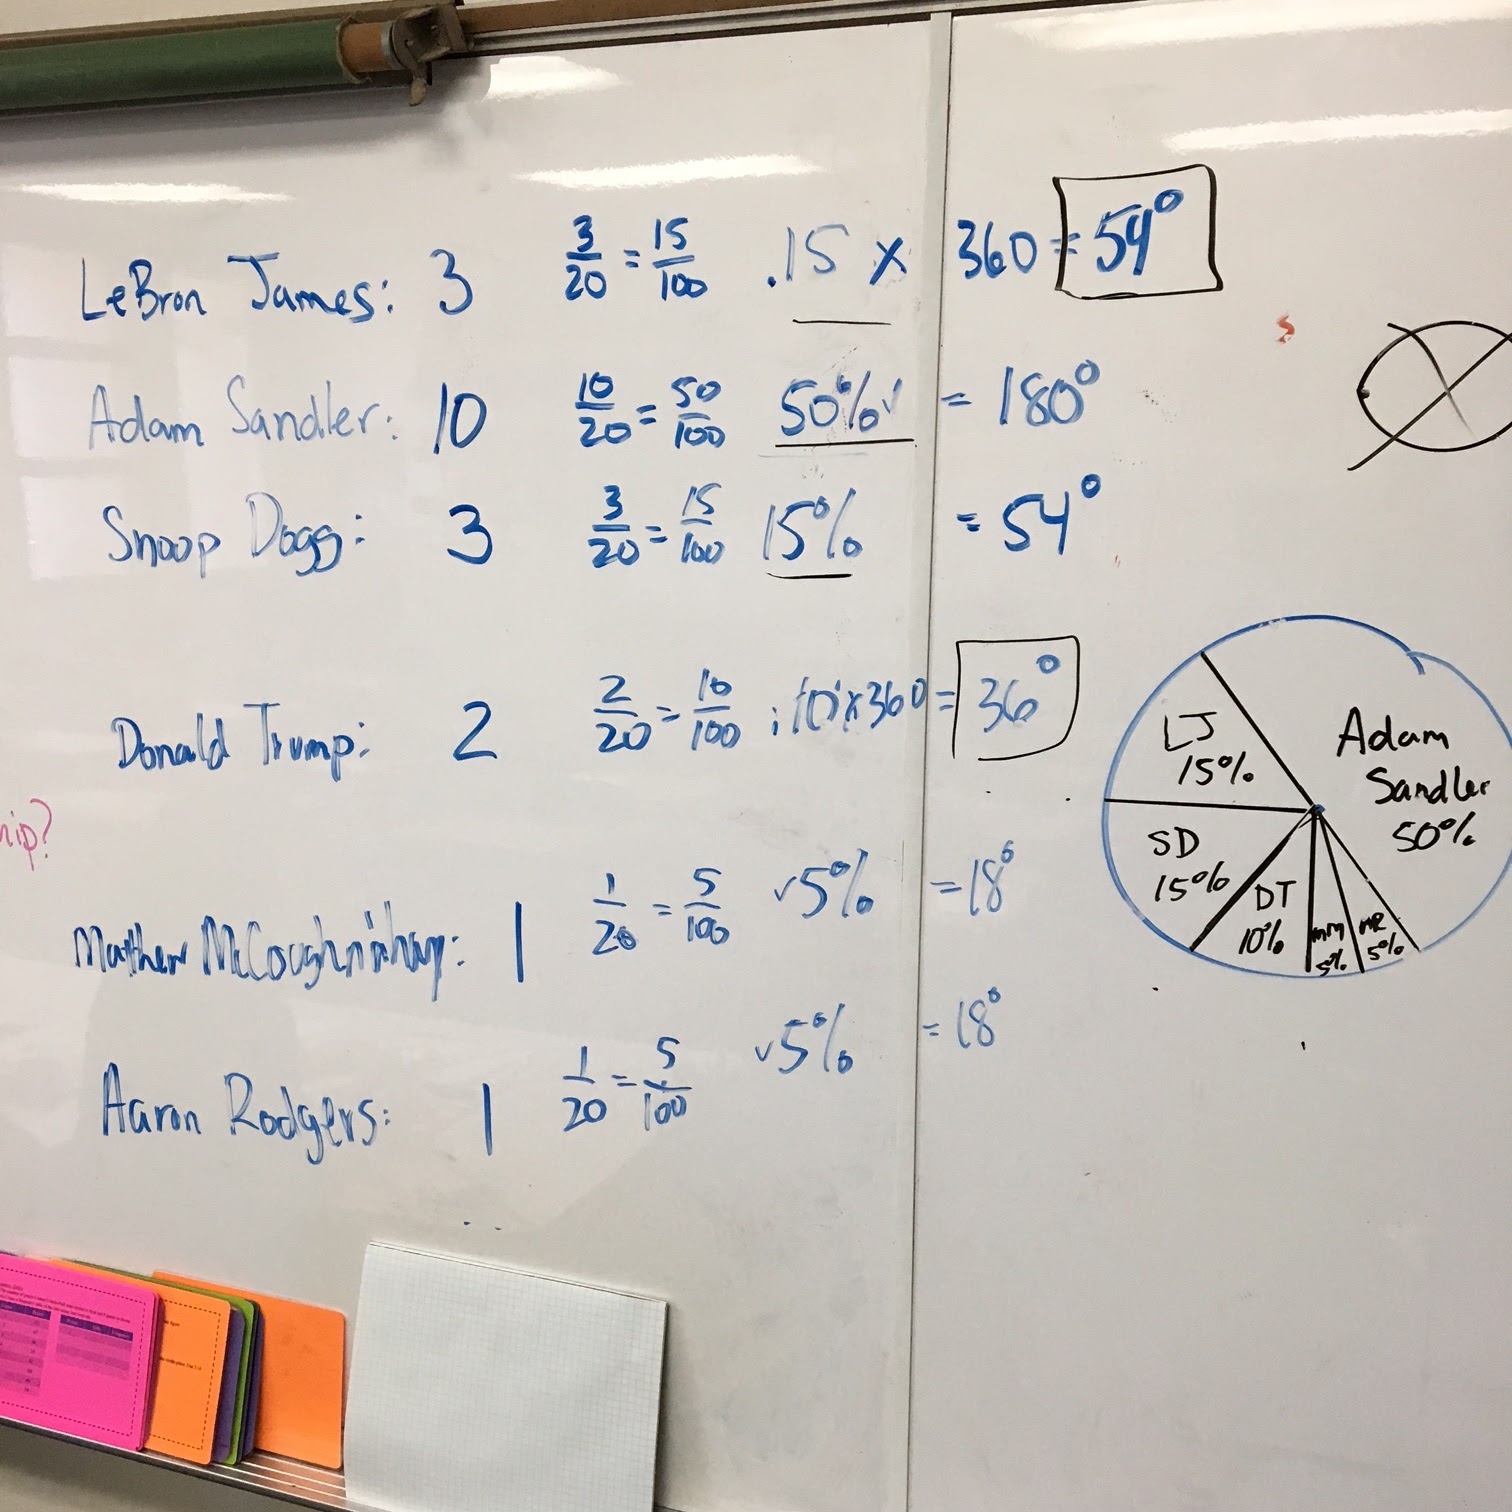 LeBron James: 3 3/20 = 15/100 .15 x 360 = 54°
Adam Sandler: 10 10/20 = 50/100 50% = 180°
Snoop Dogg: 3 3/20 = 15/100 15% = 54°
Donald Trump: 2 2/20 = 10/100 .10 x 360 = 36°
Matthew McCoughnahay: 1 1/20 = 5/100 5% = 18°
Aaron Rodgers: 1 1/20 = 5/100 5% = 18°
LJ
15%
Adam
Sandler
50%
SD
15%
DT
10%
MM
5%
AR
5%